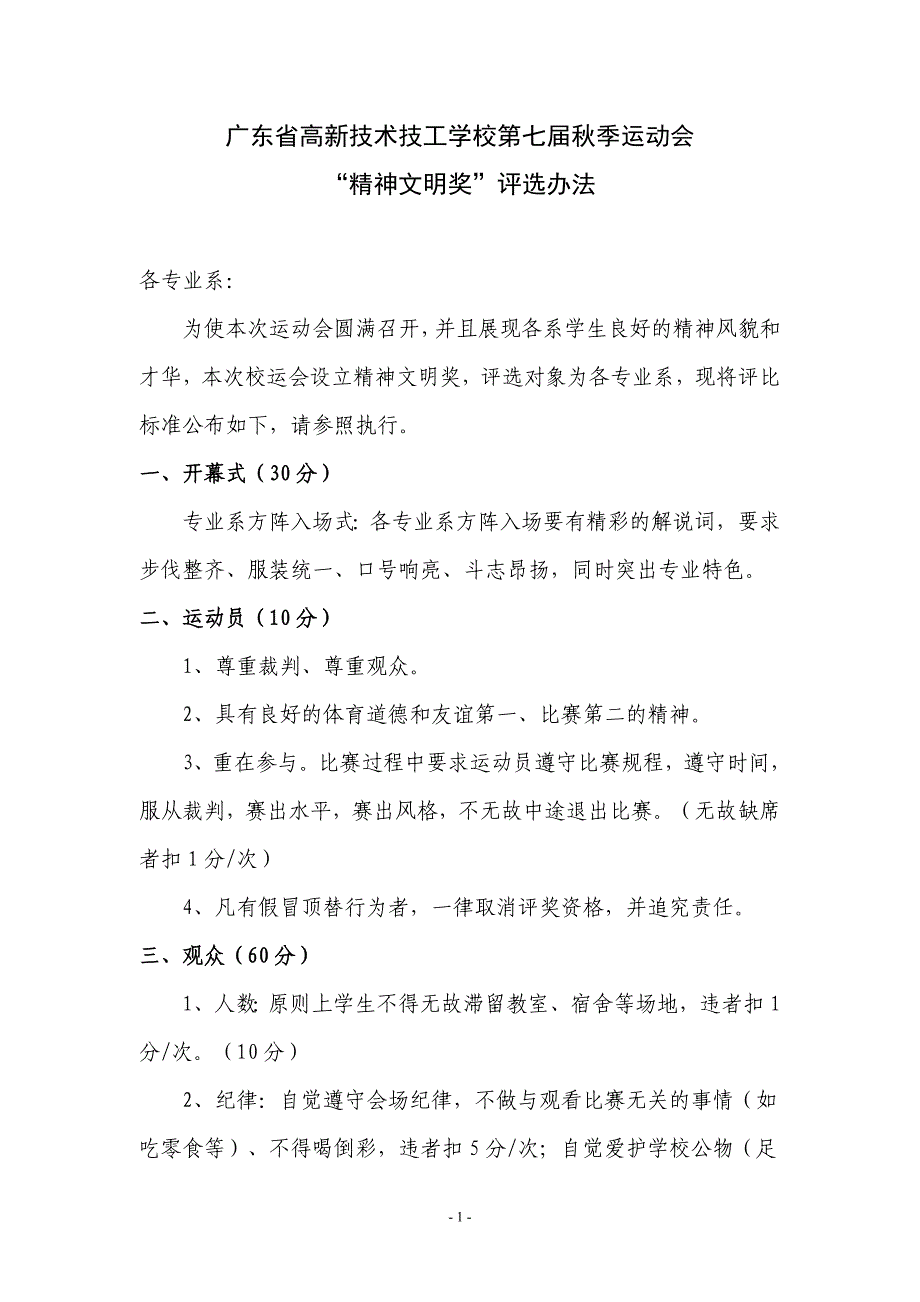 广东省高新技术技工学校第七届秋季运动会
“精神文明奖”评选办法
各专业系：
为使本次运动会圆满召开，并且展现各系学生良好的精神风貌和
才华，本次校运会设立精神文明奖，评选对象为各专业系，现将评比
标准公布如下，请参照执行。
一、开幕式（30分）
专业系方阵入场式：各专业系方阵入场要有精彩的解说词，要求
步伐整齐、服装统一、口号响亮、斗志昂扬，同时突出专业特色。
二、运动员（10分）
1、尊重裁判、尊重观众。
2、具有良好的体育道德和友谊第一、比赛第二的精神。
3、重在参与。比赛过程中要求运动员遵守比赛规程，遵守时间，
服从裁判，赛出水平，赛出风格，不无故中途退出比赛。（无故缺席
者扣1分/次）
4、凡有假冒顶替行为者，一律取消评奖资格，并追究责任。
三、观众（60分）
1、人数：原则上学生不得无故滞留教室、宿舍等场地，违者扣1
分/次。（10分）
2、纪律：自觉遵守会场纪律，不做与观看比赛无关的事情（如
吃零食等）、不得喝倒彩，违者扣5分/次；自觉爱护学校公物（足
- 1 -